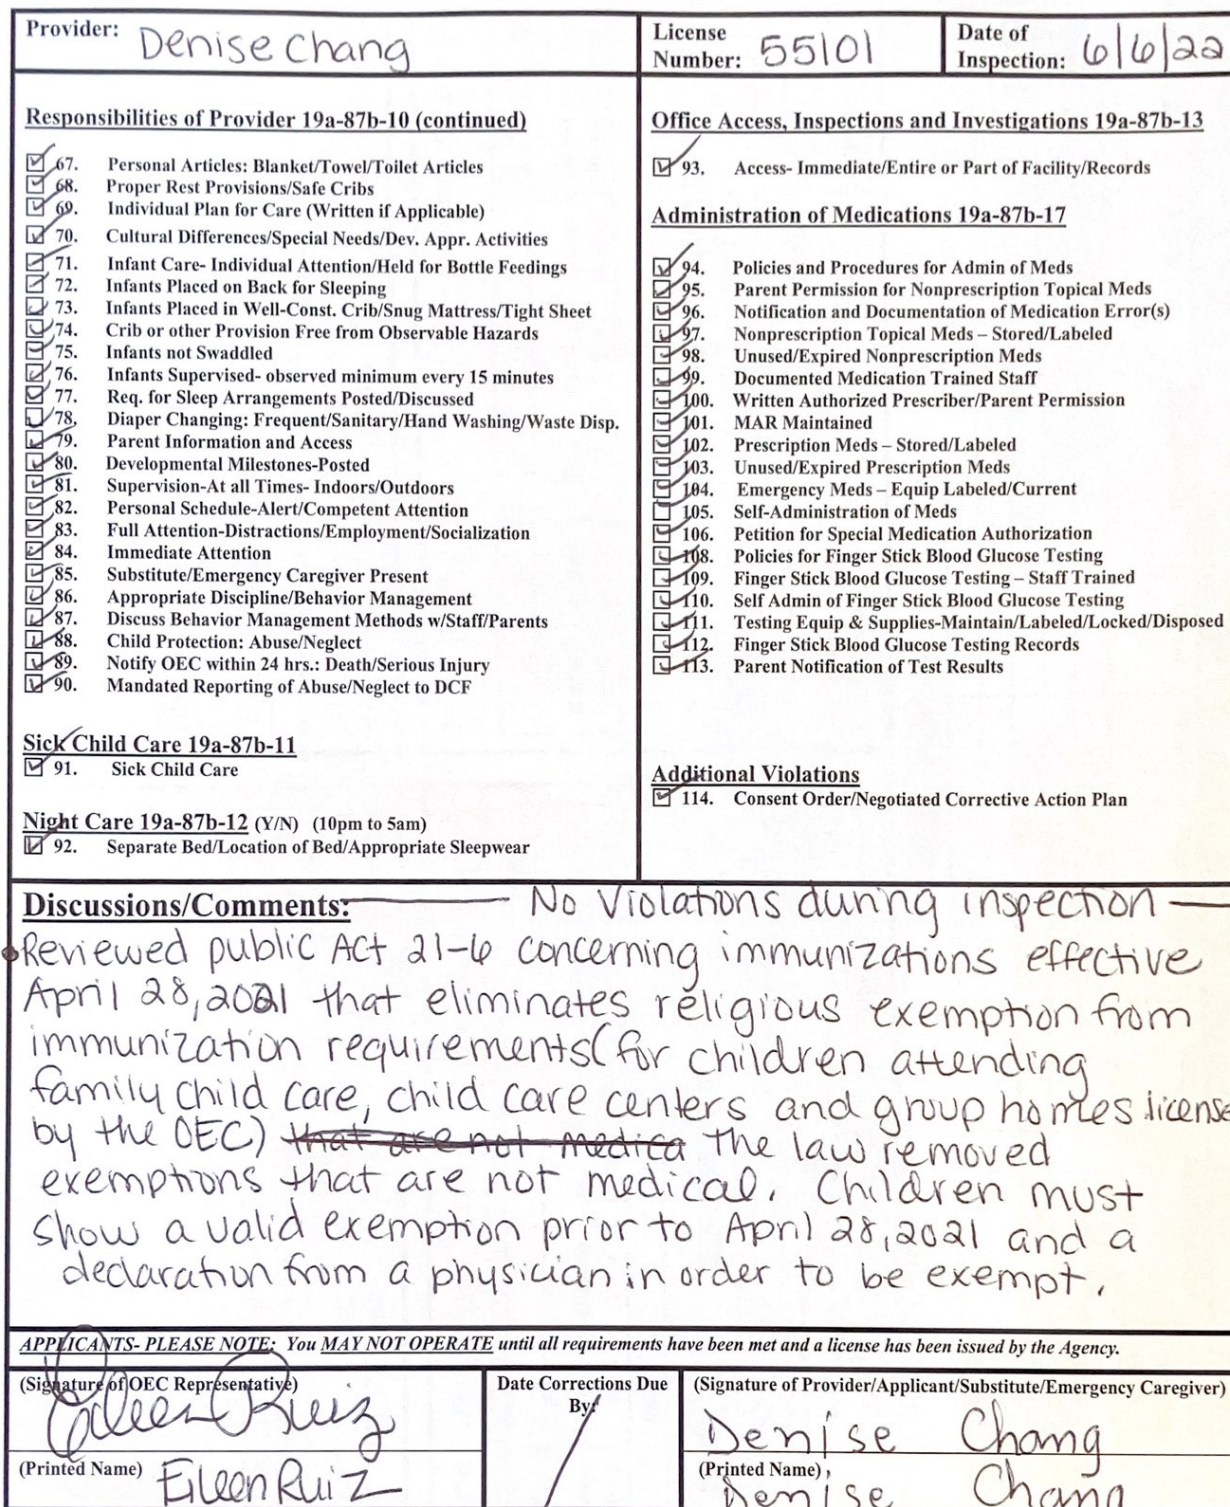 Provider: Denise Chang
License Number: 55101
Date of Inspection: 6/6/22
Responsibilities of Provider 19a-87b-10 (continued)
67. Personal Articles: Blanket/Towel/Toilet Articles
68. Proper Rest Provisions/Safe Cribs
69. Individual Plan for Care (Written if Applicable)
70. Cultural Differences/Special Needs/Dev. Appr. Activities
71. Infant Care- Individual Attention/Held for Bottle Feedings
72. Infants Placed on Back for Sleeping
73. Infants Placed in Well-Const. Crib/Snug Mattress/Tight Sheet
74. Crib or other Provision Free from Observable Hazards
75. Infants not Swaddled
76. Infants Supervised- observed minimum every 15 minutes
77. Req. for Sleep Arrangements Posted/Discussed
78. Diaper Changing: Frequent/Sanitary/Hand Washing/Waste Disp.
79. Parent Information and Access
80. Developmental Milestones-Posted
81. Supervision-At all Times- Indoors/Outdoors
82. Personal Schedule-Alert/Competent Attention
83. Full Attention-Distractions/Employment/Socialization
84. Immediate Attention
85. Substitute/Emergency Caregiver Present
86. Appropriate Discipline/Behavior Management
87. Discuss Behavior Management Methods w/Staff/Parents
88. Child Protection: Abuse/Neglect
89. Notify OEC within 24 hrs.: Death/Serious Injury
90. Mandated Reporting of Abuse/Neglect to DCF
Sick Child Care 19a-87b-11
91. Sick Child Care
Night Care 19a-87b-12 (Y/N) (10pm to 5am)
92. Separate Bed/Location of Bed/Appropriate Sleepwear
Office Access, Inspections and Investigations 19a-87b-13
93. Access- Immediate/Entire or Part of Facility/Records
Administration of Medications 19a-87b-17
94. Policies and Procedures for Admin of Meds
95. Parent Permission for Nonprescription Topical Meds
96. Notification and Documentation of Medication Error(s)
97. Nonprescription Topical Meds – Stored/Labeled
98. Unused/Expired Nonprescription Meds
99. Documented Medication Trained Staff
100. Written Authorized Prescriber/Parent Permission
101. MAR Maintained
102. Prescription Meds – Stored/Labeled
103. Unused/Expired Prescription Meds
104. Emergency Meds – Equip Labeled/Current
105. Self-Administration of Meds
106. Petition for Special Medication Authorization
108. Policies for Finger Stick Blood Glucose Testing
109. Finger Stick Blood Glucose Testing – Staff Trained
110. Self Admin of Finger Stick Blood Glucose Testing
111. Testing Equip & Supplies-Maintain/Labeled/Locked/Disposed
112. Finger Stick Blood Glucose Testing Records
113. Parent Notification of Test Results
Additional Violations
114. Consent Order/Negotiated Corrective Action Plan
Discussions/Comments: No Violations during inspection
Reviewed public Act 21-6 concerning immunizations effective
April 28, 2021 that eliminates religious exemption from
immunization requirements (for children attending
family child care, child care centers and group homes license
by the OEC) that are not medica the law removed
exemptions that are not medical. Children must
show a valid exemption prior to April 28, 2021 and a
declaration from a physician in order to be exempt.
APPLICANTS- PLEASE NOTE: You MAY NOT OPERATE until all requirements have been met and a license has been issued by the Agency.
(Signature of OEC Representative)
Eileen Ruiz
(Printed Name) Eileen Ruiz
Date Corrections Due
By:
(Signature of Provider/Applicant/Substitute/Emergency Caregiver)
Denise Chang
(Printed Name)
Denise Chang